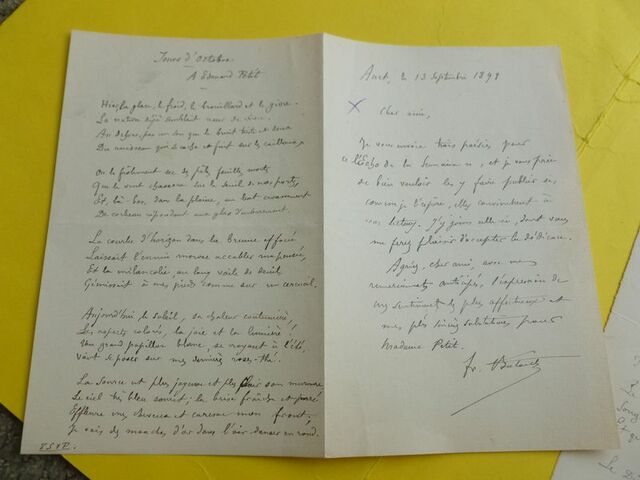 Jours d'Octobre
A Edouard Petit
Hier, la glace, le froid, le brouillard et le givre.
La nature déjà semblait morte de vivre.
Au dehors, pas un son que le bruit triste et doux
Du ruisseau qui se cache et fuit sur les cailloux,
Ou le frôlement sec des pâles feuilles mortes
Que le vent chassera sur le seuil de nos portes,
Et, là-bas, dans la plaine, un lent croassement
De corbeau répondant aux glas d'enterrement.
La courbe d'horizon dans la brume effacée
Laissait l'ennui morose accabler ma pensée,
Et la mélancolie, au long voile de deuil
Gémissait à mes pieds comme sur un cercueil.
Aujourd'hui, le soleil, sa chaleur coutumière,
Les aspects colorés, la joie et la lumière !
Un grand papillon blanc, se croyant à l'été,
Vient se poser sur mes dernières roses-thé.
La source est plus joyeuse et plus clair son murmure
Le ciel très bleu sourit ; la brise fraîche et pure
Effleure mes cheveux et caresse mon front ;
Je vois des mouches d'or dans l'air danser en rond.
T.S.V.P.
le 13 septembre 1899
Cher ami,
Je vous envoie trois poésies pour
"l'Écho de la Semaine", et je vous prie
de bien vouloir les y faire publier si,
comme je l'espère, elles conviennent à
vos lecteurs. J'y joins celle-ci, dont vous
me ferez plaisir d'accepter la dédicace.
Agréez, cher ami, avec mes
remerciements anticipés, l'expression de
mes sentiments les plus affectueux et
mes plus sincères salutations pour
Madame Petit.
Fr.